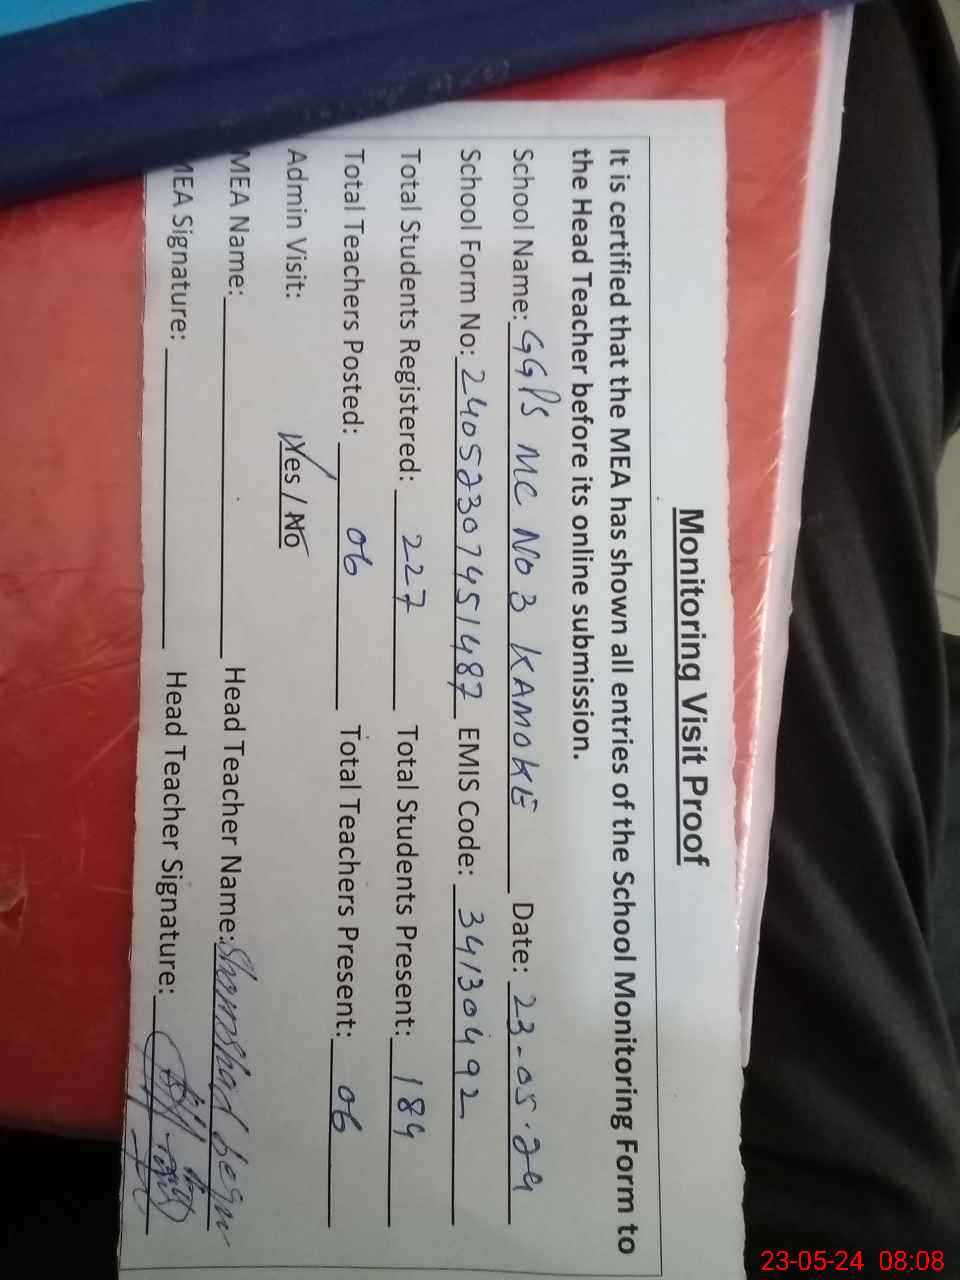 Monitoring Visit Proof
It is certified that the MEA has shown all entries of the School Monitoring Form to
the Head Teacher before its online submission.
School Name: GGPS MC No 3 KAMOKE Date: 23-05-24
School Form No: 24052307451487 EMIS Code: 34130492
Total Students Registered: 227 Total Students Present: 189
Total Teachers Posted: 06 Total Teachers Present: 06
Admin Visit: Yes / No
MEA Name: Head Teacher Name: Shamshad begum
MEA Signature: Head Teacher Signature:
23-05-24 08:08